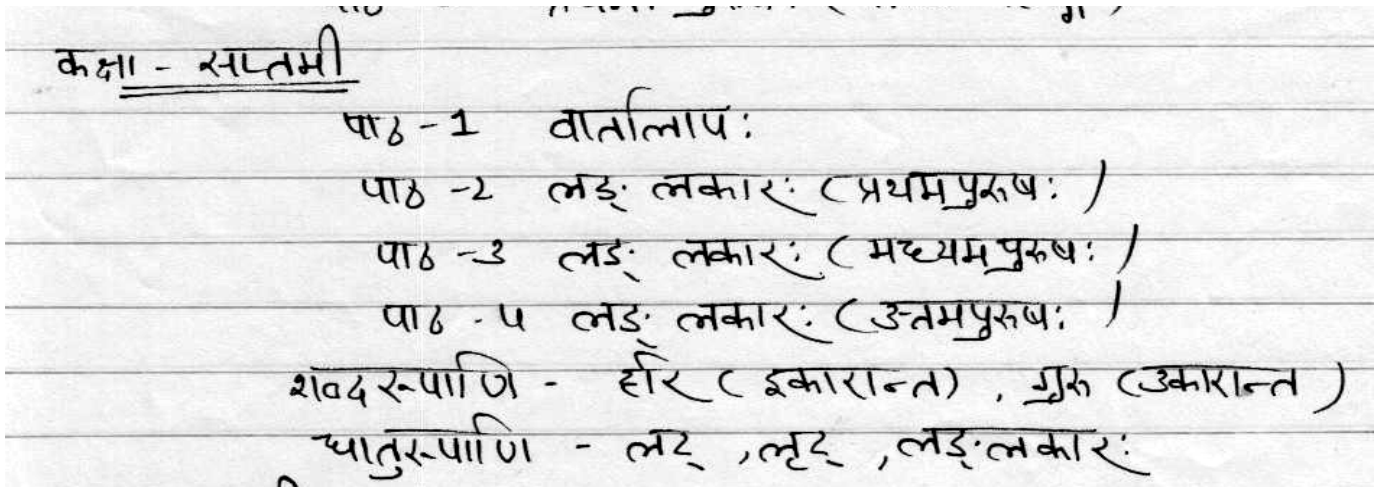 कक्षा - सप्तमी
पाठ - 1 वार्तालापः
पाठ - 2 लङ् लकारः (प्रथमपुरुषः)
पाठ - 3 लङ् लकारः (मध्यमपुरुषः)
पाठ - 4 लङ् लकारः (उत्तमपुरुषः)
शब्दरूपाणि - हरि (इकारान्त), गुरु (उकारान्त)
धातुरूपाणि - लट्, लृट्, लङ्लकारः